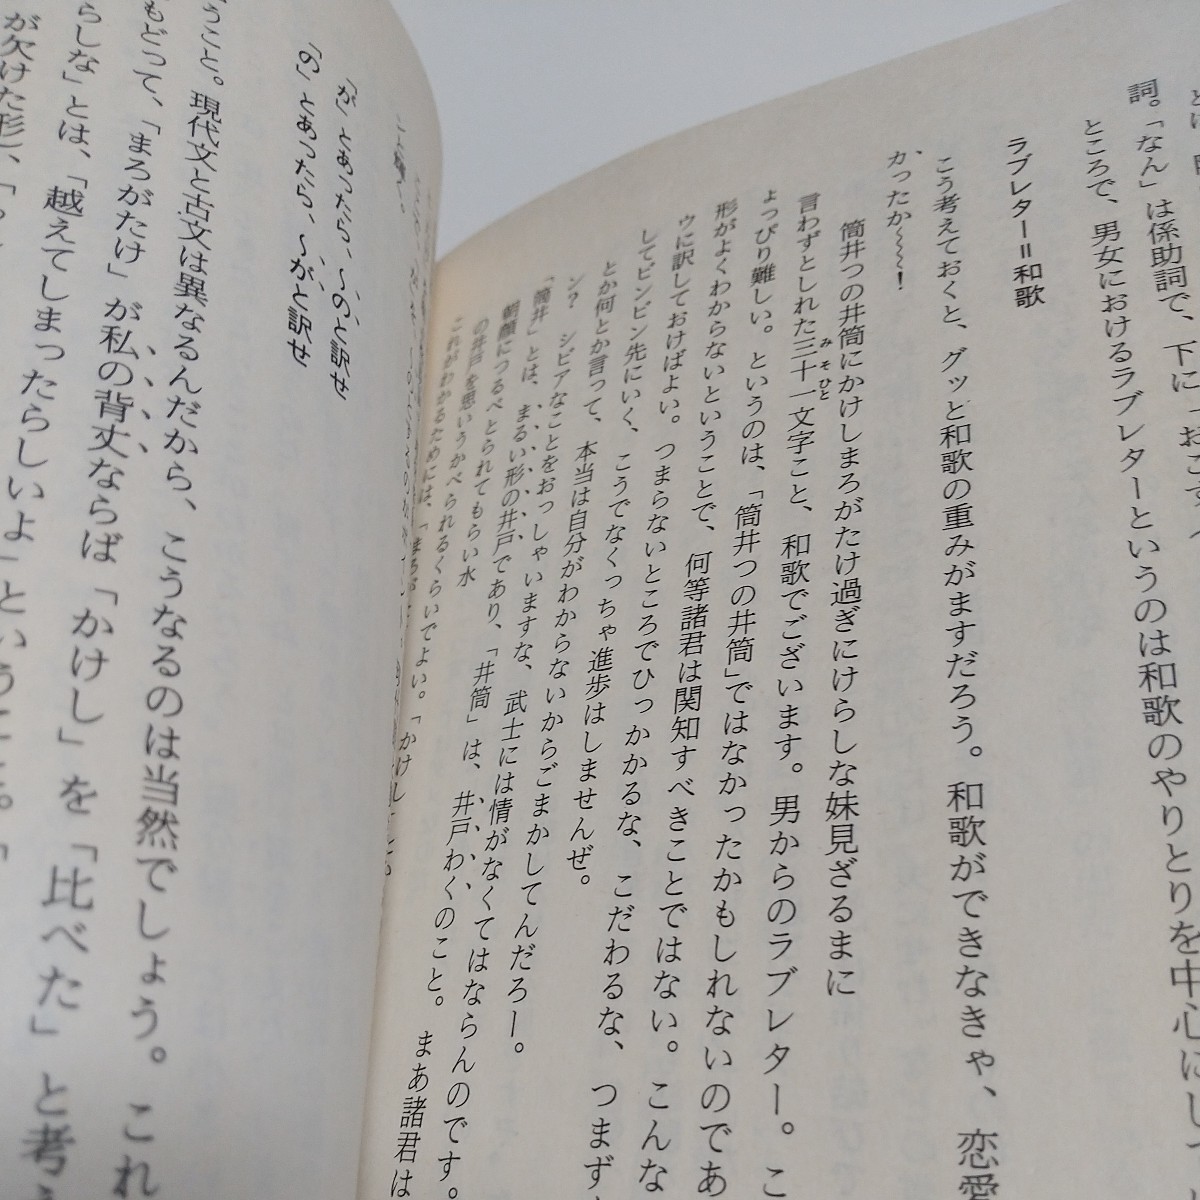 詞。「なん」は係助詞で、下に「おこす
ところで、男女におけるラブレターというのは和歌のやりとりを中心にして
ラブレター＝和歌
こう考えておくと、グッと和歌の重みがますだろう。和歌ができなきゃ、恋愛
かったか〜〜！
筒井つの井筒にかけしまろがたけ過ぎにけらしな妹見ざるまに
言わずとしれた三十一文字こと、和歌でございます。男からのラブレター。こ
みそひと
ょっぴり難しい。というのは、「筒井つの井筒」ではなかったかもしれないのであ
形がよくわからないということで、何等諸君は関知すべきことではない。こんな
ゥに訳しておけばよい。つまらないところでひっかかるな、こだわるな、つまず
してビンビン先にいく、こうでなくっちゃ進歩はしませんぜ。
とか何とか言って、本当は自分がわからないからごまかしてんだろー。
ン？　シビアなことをおっしゃいますな、武士には情がなくてはならんのです。
「筒井」とは、まるい形の井戸であり、「井筒」は、井戸わくのこと。まあ諸君は
朝顔につるべとられてもらい水
の井戸を思いうかべられるくらいでよい。「かけし
これがわかるためには、「まろが
「が」とあったら、〜のと訳せ
「の」とあったら、〜がと訳せ
うこと。現代文と古文は異なるんだから、こうなるのは当然でしょう。これ
もどって、「まろがたけ」が私の背丈ならば「かけし」を「比べた」と考え
らしな」とは、「越えてしまったらしいよ」ということ。「
が欠けた形し、「